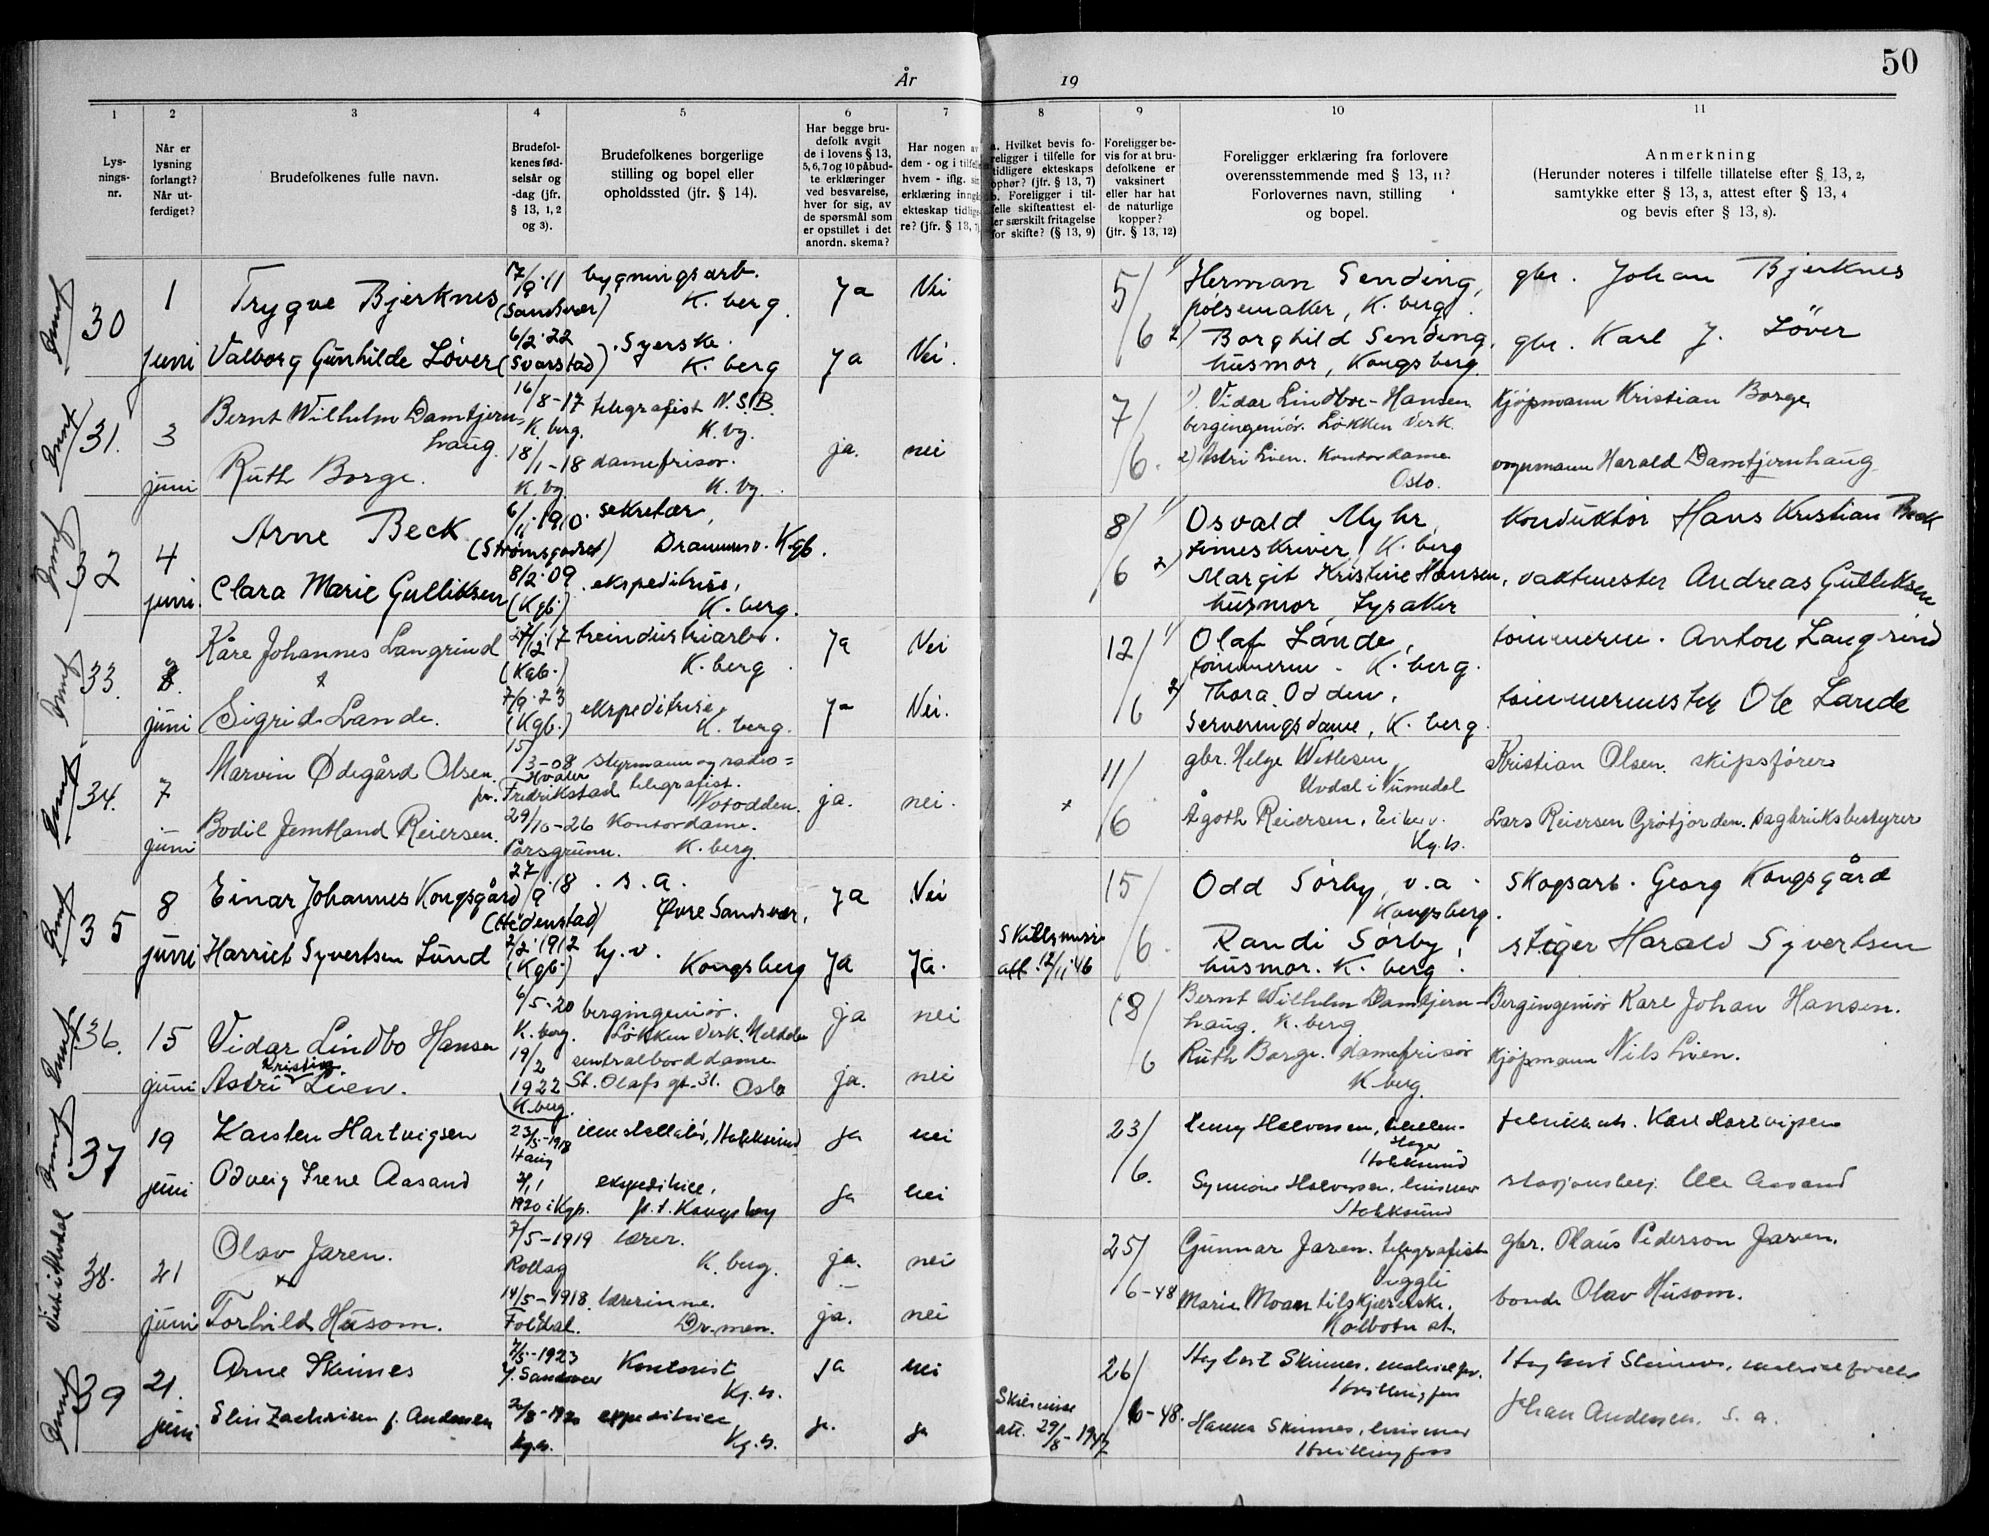 50
År
19
1
2
3
4
5
6
7
8
9
10
11
Lys-
nings-
nr.
Når er
lysning
forlangt?
Når ut-
ferdiget?
Brudefolkenes fulle navn.
Brudefol-
kenes fød-
selsår og
-dag (jfr.
§ 13, 1, 2
og 3).
Brudefolkenes borgerlige
stilling og bopel eller
opholdssted (jfr. § 14).
Har begge bru-
defolk avgit
de i lovens § 13,
5, 6, 7 og 10 påbud-
te erklæringer
ved besvarelse,
hver for sig, av
de spørsmål som
er opstillet i det
anordn. skema?
Har nogen av
dem - og i tilfelle
hvem - iflg. sin
erklæring inngått
ekteskap tidlige-
re? (jfr. § 13, 7)
a. Hvilket bevis fo-
religger i tilfelle for
tidligere ekteskaps
ophør? (jfr. § 13, 7)
b. Foreligger i til-
felle skifteattest el-
ler særskilt fritagelse
for skifte? (§ 13, 9)
Foreligger be-
vis for at bru-
defolkene er
vaksinert
eller har hat
de naturlige
kopper?
(jfr. § 13, 12)
Foreligger erklæring fra forlovere
overensstemmende med § 13, 11?
Forlovernes navn, stilling
og bopel.
Anmerkning
(Herunder noteres i tilfelle tillatelse efter § 13, 2,
samtykke efter § 13, 3, attest efter § 13, 4
og bevis efter § 13, 8).
30
1
juni
Trygve Bjerknes
17/9.11
(Sandsvær)
bygningsarb.
K. berg.
Ja
Nei
5/6
1) Herman Sending,
pølsemaker, K. berg.
gbr. Johan Bjerknes
Valborg Gunhilde Løver
6/2.22
(Svarstad)
Syerske.
K. berg
Ja
Nei.
2) Borghild Sending,
husmor, Kongsberg.
gbr. Karl J. Løver
31.
3
juni
Bernt Wilhelm Damtjern-
haug.
16/8-17
K. berg.
telegrafist N.S.B.
K. bg.
ja.
nei
7/6.
1). Vidar Lindboe-Hansen
bergingeniør. Løkken Verk.
Kjøpmann Kristian Borge
Ruth Borge.
18/1-18
K. bg.
damefrisør.
K. bg.
2) Astri Lien. Kontordame
Oslo.
vognmann Harald Damtjernhaug
32
4
juni.
Arne Beck
6/11.1910.
(Strømsgodset)
sekretær,
Drammensv. Kgb.
8/6
1) Osvald Myhr,
timeskriver, K. berg
konduktør Hans Kristian Beck
Clara Marie Gulliksen
8/2.09
(Kgb.)
ekspeditrise,
K. berg.
2) Margit Kristine Hansen,
husmor, Lysaker
vaktmester Andreas Gulliksen
33.
juni
Kåre Johannes Langrind
(Kgb.)
treindustriarb.
K. berg.
Ja
Nei
12/6
1) Olaf Lande,
tømmerm. K. berg.
tømmerm. Anton Langrind
Sigrid Lande.
7/9.23
(Kgb.)
ekspeditrise,
K. berg.
Ja
Nei.
2) Thora Odden,
Serveringsdame, K. berg.
tømmermester Ole Lande
34.
7
juni
Marvin Ødegård Olsen.
15/3-08
Hvaler
pr. Fredrikstad
styrmann og radio=
telegrafist.
Notodden.
ja.
nei.
11/6
gbr. Helge Wetlesen
Uvdal i Numedal
Kristian Olsen. skipsfører
Bodil Jemtland Reiersen.
29/10-26
Porsgrunn.
Kontordame.
K. berg.
Ågoth Reiersen, Eikerv.
Kg.b.
Lars Reiersen Grotjorden. Dagbruksbestyrer
35
8
juni
Einar Johannes Kongsgård
27/9.18
(Hedenstad)
s. a.
Øvre Sandsvær,
Ja
Nei
15/6.
Odd Sørby, v.a.
Kongsberg.
Skogsarb. Georg Kongsgård
Harriet Syvertsen Lund
2/2.1912
(Kgb.)
hj. v.
Kongsberg
Ja
Ja.
Skilsmisse
att. 12/11.46
Randi Sørby,
husmor. K. berg.
stiger Harald Syvertsen
36.
15
juni
Vidar Lindbo Hansen
6/5-20
K. berg.
bergingeniør.
Løkken Verk. Meldalen
ja
nei
18/6
Bernt Wilhelm Damtjern-
haug. K. berg.
Bergingeniør Karl Johan Hansen.
Kristine
Astri Lien.
19/2
1922
K. berg.
sentralborddame
St. Olafs gt. 31. Oslo
ja.
nei
Ruth Borge. damefrisør
K. berg.
Kjøpmann Nils Lien.
37
19
juni
Karsten Hartvigsen
23/5-1918
Haug
Hokksund
ja
nei
23/6.
Henny Halvorsen,
Hokksund
Karl Hartvigsen
Odveig Irene Aasand
1920 i Kgb.
expeditrice,
p.t. Kongsberg
ja
nei
Halvorsen, husmor
Hokksund
Ole Aasand
Viet i Alvdal
38.
21
juni
Olav Jaren.
7/5-1919
Rollag
lærer.
K. berg.
ja.
nei
25/6-48
Gunnar Jaren. telegrafist
Veggli
gbr. Olaus Pederson Jaren.
Torhild Husom.
14/5-1918.
Folldal.
lærerinne.
Dr.men.
ja.
nei
Marie Moan tilskjærerske.
Kolbotn st.
bonde Olav Husom.
39
21.
juni
Arne Skinnes
7/5-1923
Ø. Sandsvær
Kontorist
Kg.b.
ja
nei
26/6-48.
Skinnes, materialforv.
Hvittingfoss
Skinnes, materialforvalter
Elin Zachrisen f. Andersen
Kg.b.
expeditrice
Kg.b.
ja.
ja
Skilsmisse
att. 29/8-1947
Hanna Skinnes, husmor
Hvittingfoss
Johan Andersen. s. a.